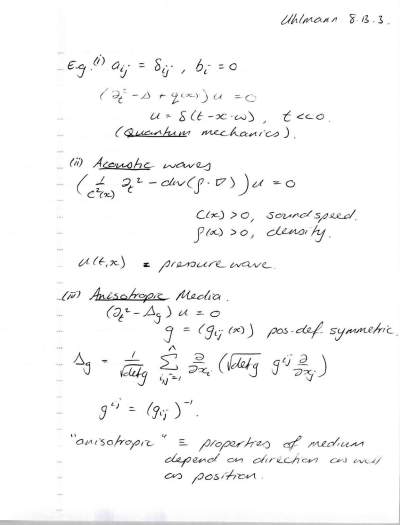 Uhlmann 8.13.3.
E.g. (i) aᵢⱼ = δᵢⱼ , bᵢ = 0
(∂ₜ² - Δ + q(x)) u = 0
u = δ(t - x·ω), t << 0.
(Quantum mechanics).
(ii) Acoustic waves
(1/c²(x) ∂ₜ² - div(ρ·∇)) u = 0
c(x) > 0, sound speed.
ρ(x) > 0, density.
u(t,x) = pressure wave.
(iii) Anisotropic Media.
(∂ₜ² - Δg) u = 0
g = (gᵢⱼ(x)) pos-def symmetric.
Δg = 1/√detg Σⁿᵢ,ⱼ₌₁ ∂/∂xᵢ (√detg gⁱʲ ∂/∂xⱼ)
gⁱʲ = (gᵢⱼ)⁻¹.
"anisotropic" ≡ properties of medium
depend on direction as well
as position.